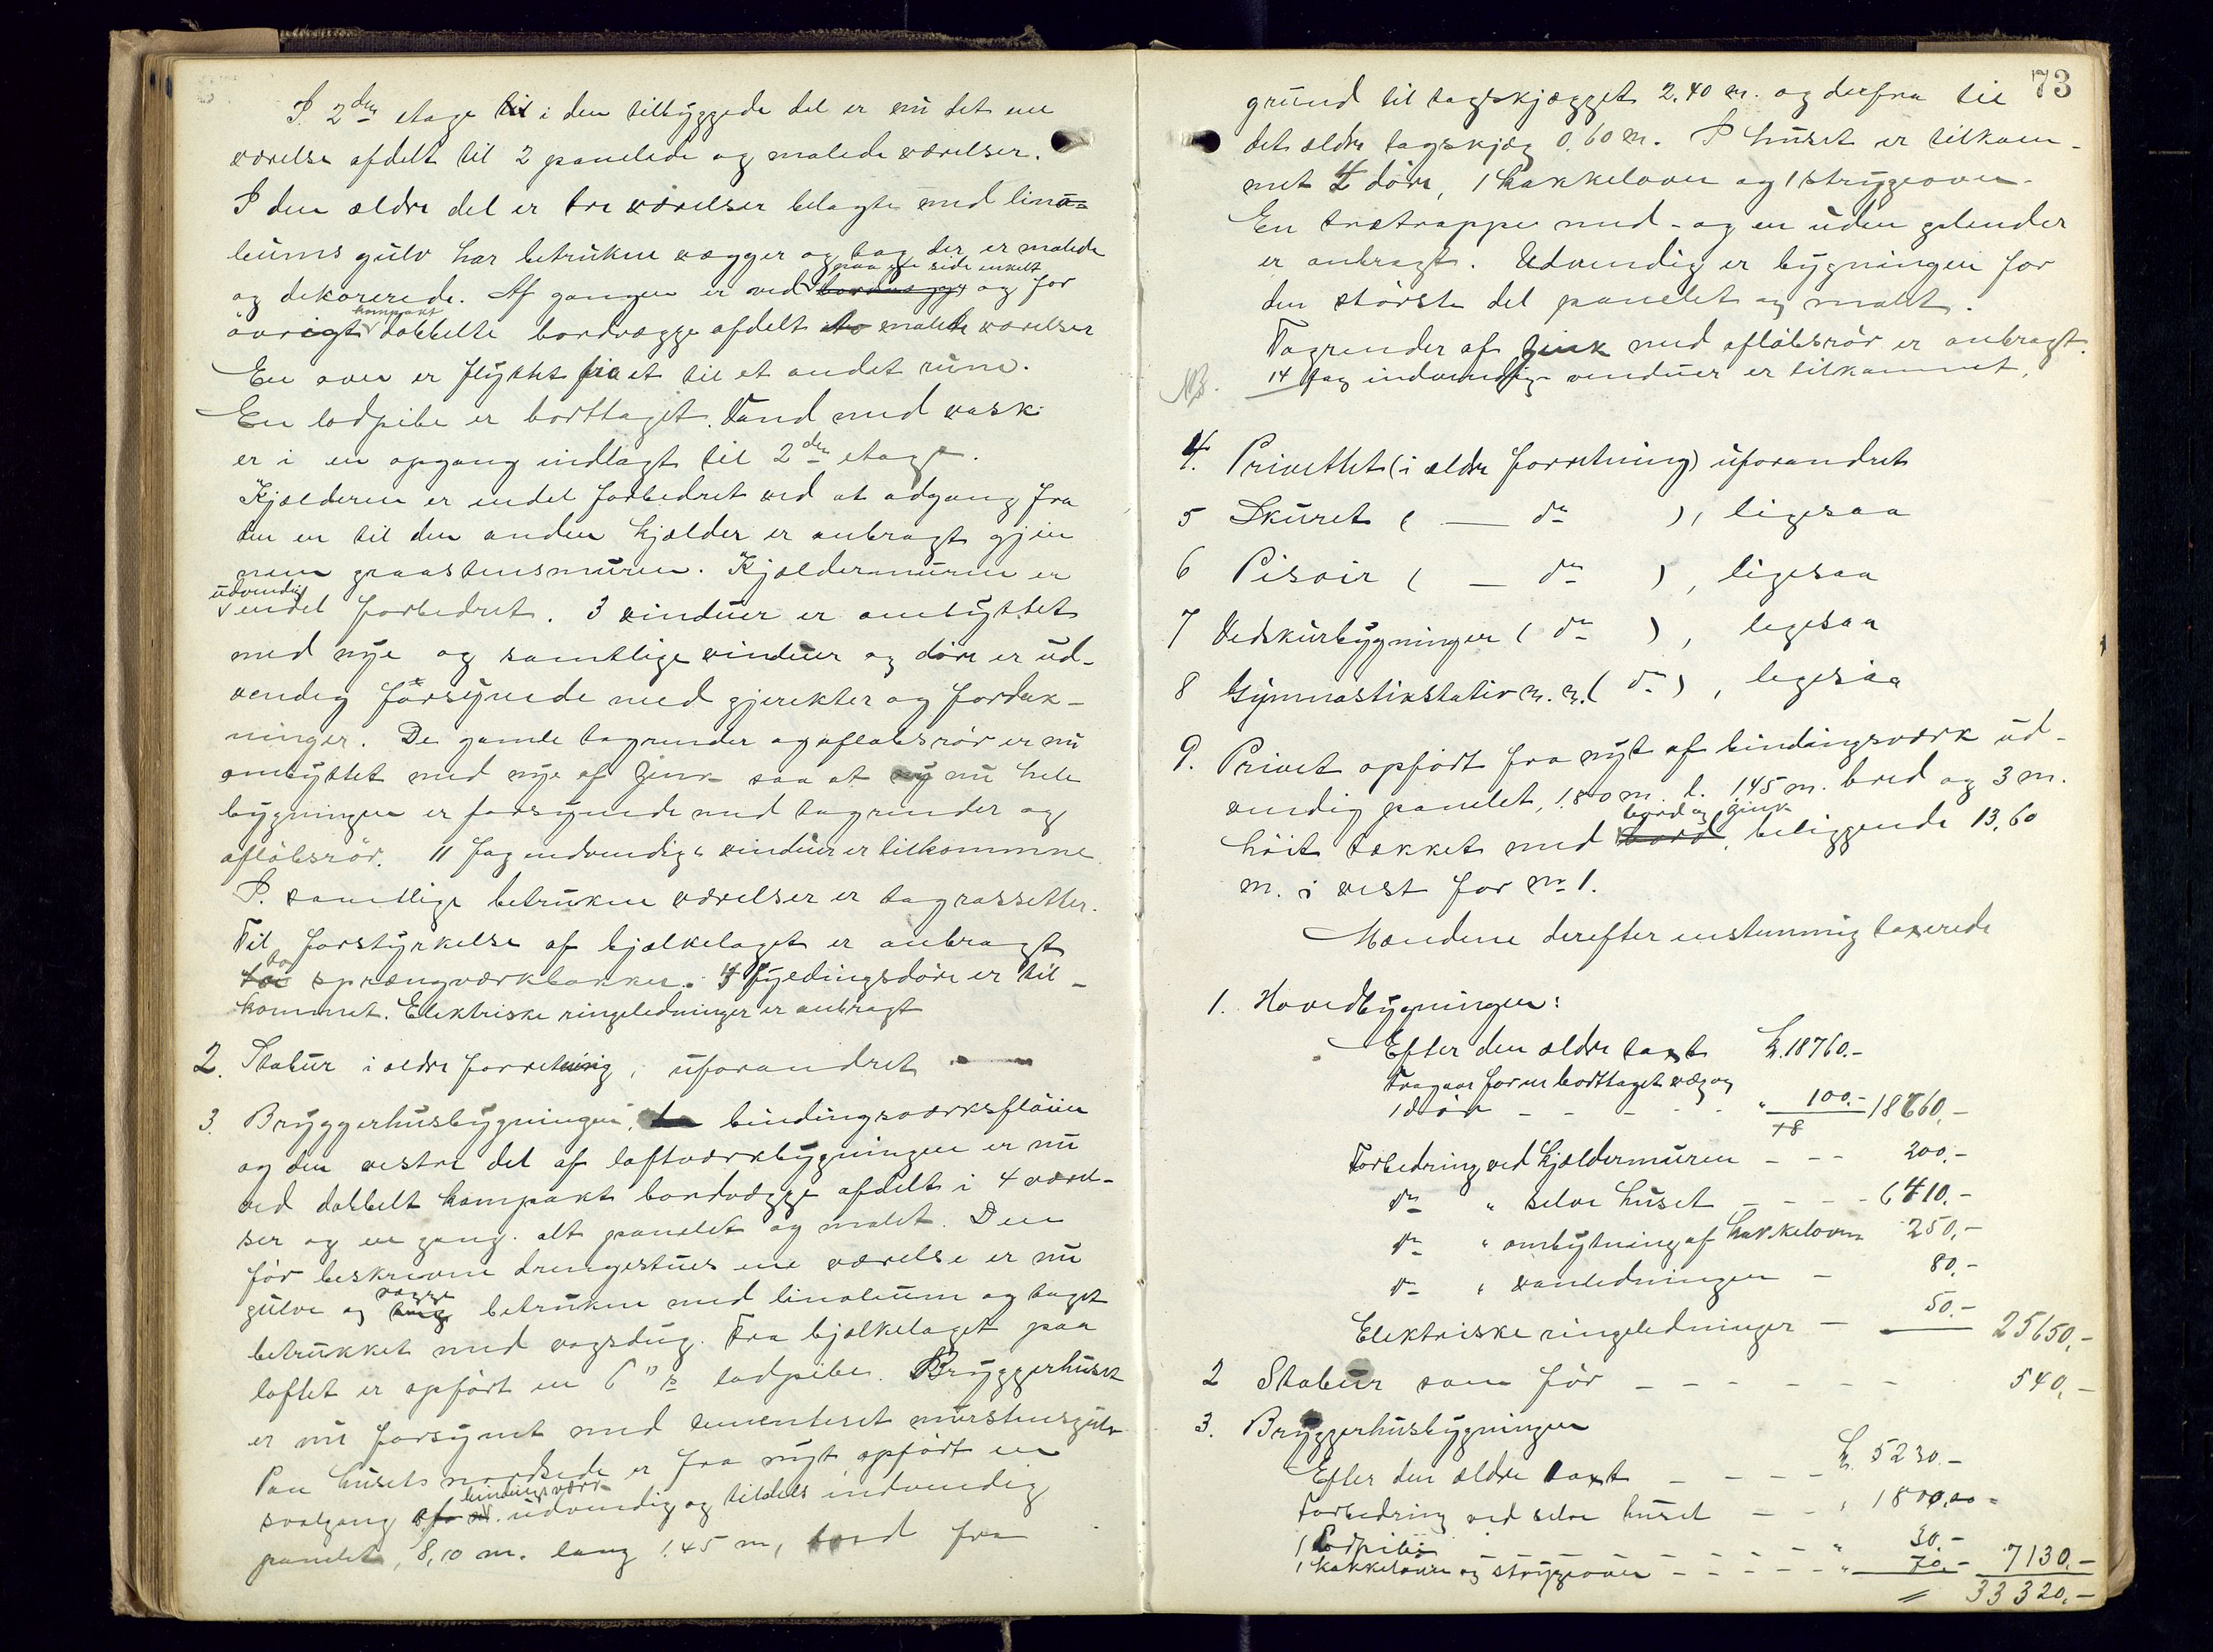 I 2den etage i den tilbyggede del er nu det ene
værelse afdelt til 2 panelede og malede værelser.
I den ældre del er tre værelser belagte med lino-
leums gulv har betrukne vægger og tag der er malede
og dekorerede. Af gangen er ved paa ene side enkelt og for
övrigt kompakt dobbelte bordvægge afdelt to malede værelser
En ovn er flyttet fra et til et andet rum.
En lodpibe er borttaget. Vand med vask
er i en opgang indlagt til 2den etage.
Kjælderen er endel forbedret ved at adgang fra
den en til den anden kjælder er anbragt gjen
nem graastensmuren. Kjældermuren er
udvendig endel forbedret. 3 vinduer er ombyttet
med nye og samtlige vinduer og döre er ud-
vendig forsynede med gjerekter og fordæk-
ninger. De gamle tagrender og aflöbsrör er nu
ombyttet med nye af zink saa at nu hele
bygningen er forsynede med tagrender og
aflöbsrör. 11 fag indvendige vinduer er tilkommne.
I samtlige betrukne værelser er tagrossetter.
Til forstyrkelse af bjælkelaget er anbragt
to sprængværkbukker. 4 fyldingsdöre er til-
kommet. Elektriske ringeledninger er anbragt
2. Stabur i ældre forretning, uforandret
3. Bryggerhusbygningen, bindingsværksflöien
og den vestre del af loftværkbygningen er nu
ved dobbelt kompakt bordvægge afdelt i 4 værel-
ser og en gang. alt panelet og malet. Den
för beskrevne drengestues ene værelse er nu
gulve og vægge betrukne med linoleum og taget
betrukket med voxdug. Fra bjælkelaget paa
loftet er opfört en 6" lodpibe. Bryggerhuset
er nu forsynet med cementeret murstensgulv
Paa husets nordside er fra nyt opfört en
svalgang af bindingsværk udvendig og tildels indvendig
panelet, 8,10 m. lang 1.45 m, bred fra
73
grund til tagskjægget 2.40 m. og derfra til
det ældre tagskjæg 0,60 m. I huset er tilkom-
met 4 döre, 1 kakkelovn og 1 strygeovn.
En trætrappe med- og en uden gelender
er anbragt. Udvendig er bygningen for
den störste del panelet og malet.
Tagrender af zink med aflöbsrör er anbragt.
NB. 14 fag indvendige vinduer er tilkommet.
4. Privettet (i ældre forretning) uforandret
5 Skuret ( — do ), ligesaa
6 Pisoir ( — do ), ligesaa
7 Vedskurbygningen ( do ), legesaa
8 Gymnastikstativ m. m. ( do ), legesaa
9. Privet opfört fra nyt af bindingsværk ud-
vendig panelet, 1.80 m. l. 1.45 m. bred og 3 m.
höit tækket med bord og zink, beliggende 13,60
m. i vest for No 1.
Mændene derefter enstemmig taxerede
1. Hovedbygningen:
Efter den ældre taxt K. 18760.-
Fragaar for en borttaget væg og
1 dör - - - " 100.- 18660.-
Forbedring ved kjældermuren - - - 200.-
do " selve huset - - - - 6410.-
do " ombytning af kakkelovne 250.-
do " vanledningen - 80.-
Elektriske ringeledninger - 50.- 25650,-
2 Stabur som för - - - - - - 540,-
3. Bryggerhusbygningen
Efter den ældre taxt - - - - K. 5230.-
Forbedring ved selve huset - - " 1800.00 -
1 Lodpibe - " 30.-
1 kakkelovn og strygeovn - - - - - " 70.- 7130.-
33320,-